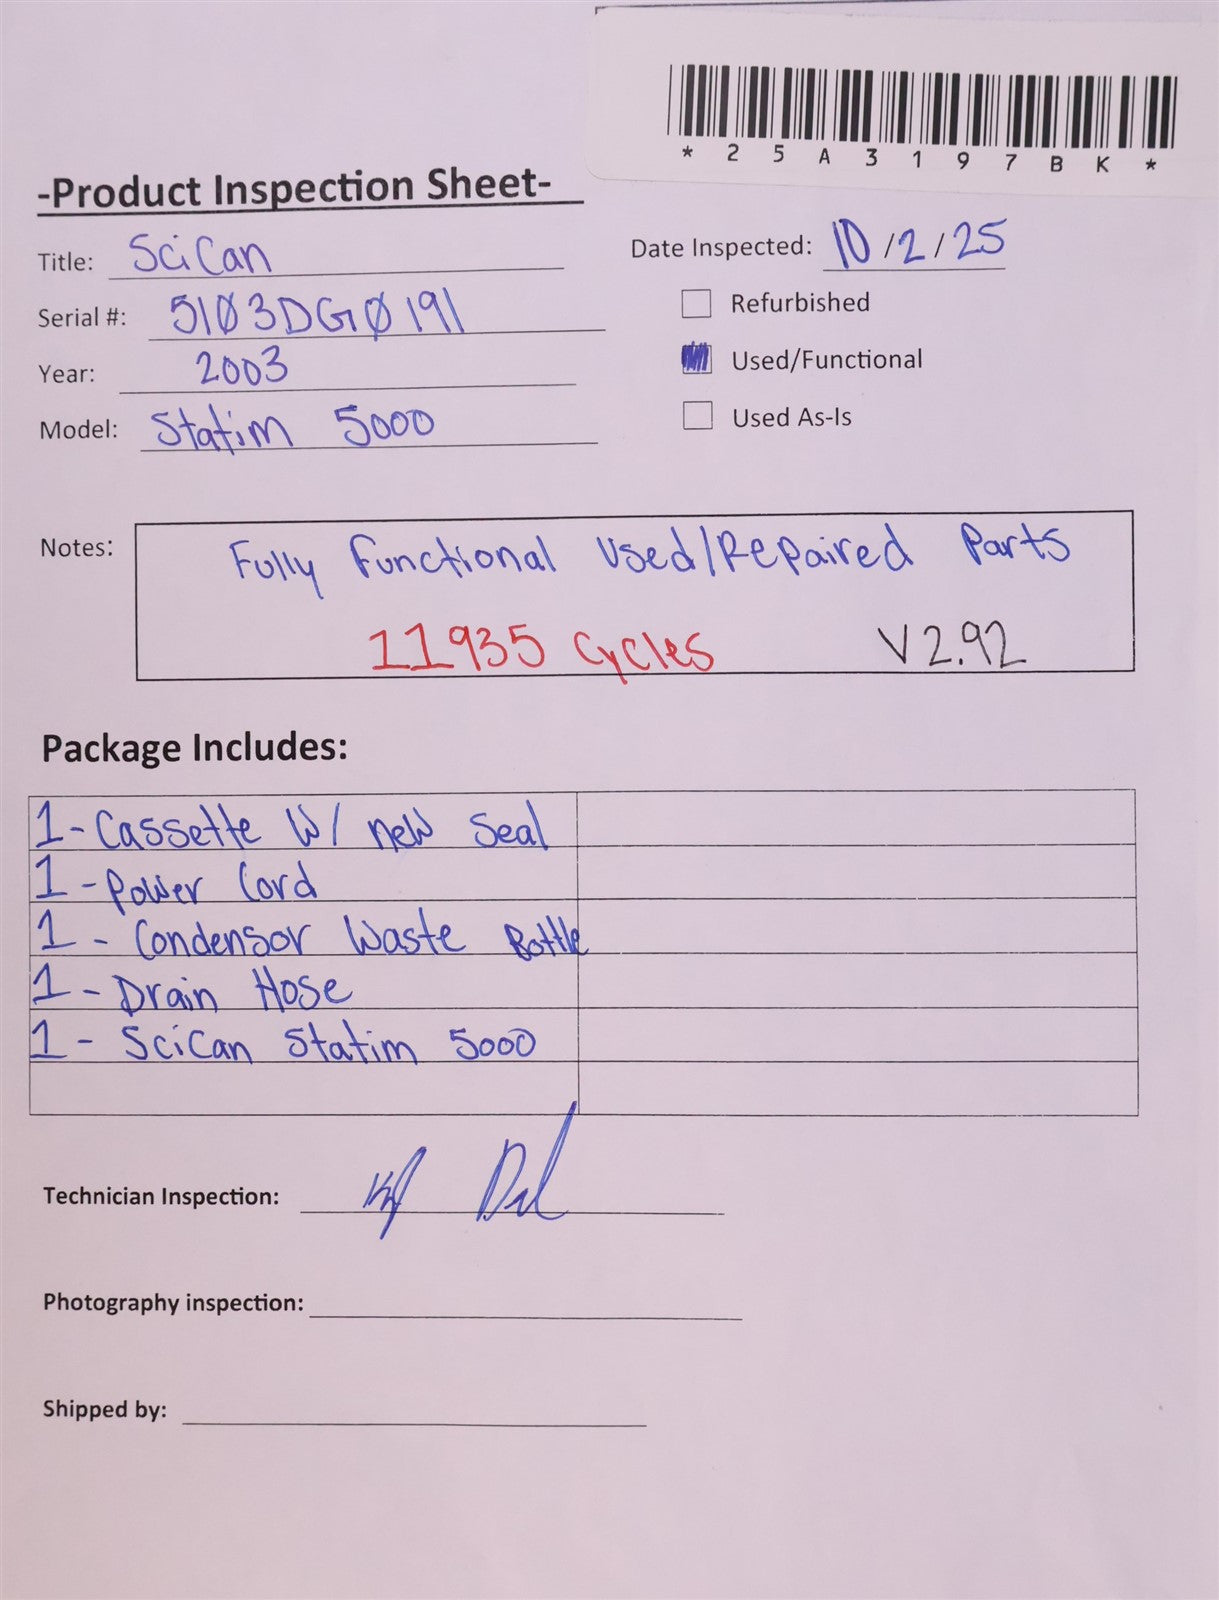 * 2 5 A 3 1 9 7 B K *
-Product Inspection Sheet-
Title: SciCan
Date Inspected: 10/2/25
Serial #: 51Ø3DGØ191
Refurbished
Year: 2003
Used/Functional
Model: Statim 5000
Used As-Is
Notes: Fully Functional Used/Repaired Parts
11935 Cycles V2.92
Package Includes:
1-Cassette W/ new Seal
1-Power Cord
1 - Condensor Waste Bottle
1 - Drain Hose
1 - SciCan Statim 5000
Technician Inspection:
Photography inspection:
Shipped by: